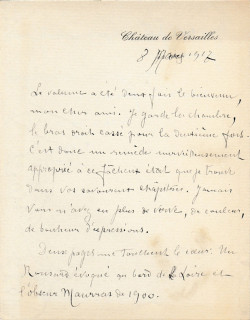 Château de Versailles
8 Mars 1917
Le volume a été deux fois le bienvenu,
mon cher ami. Je garde la chambre,
le bras droit cassé pour la deuxième fois.
C'est donc un remède merveilleusement
approprié à ce fâcheux état que je trouve
dans vos savoureux chapitres. Jamais
vous n'avez eu plus de verve, de couleur,
de bonheur d'expressions.
Deux pages me touchent le cœur : Un
Ronsard évoqué au bord de la Loire, et
l'obscur Maurras de 1900.